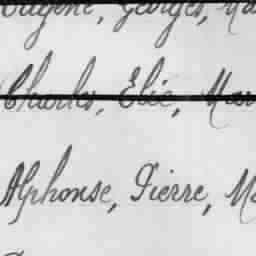 Eugène, Georges, Ma
Charles, Elie, Mar
Alphonse, Pierre, Ma